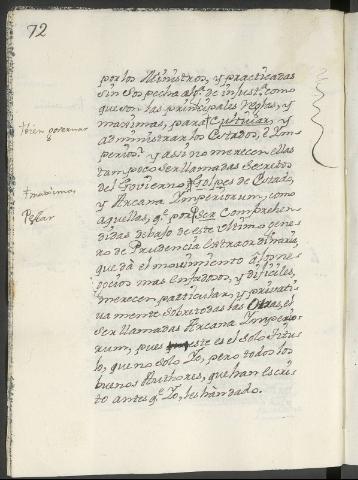 72
por los Ministros, y practicadas
sin sospecha alg.ª de injust.ª como
que son las principales Reglas, y
maximas, para cultivar, y
administrar los Estados, è Im-
perios: y assi no merecen ellas
tampoco ser llamadas Secretos
del Govierno, Golpes de Estado,
y Arcana Imperiorum, como
aquellas, q.e por ser Comprehen-
didas debajo de este ultimo gene-
ro de Prudencia Extraordinaria,
que dà el movimiento à los ne-
gocios mas enfadosos, y dificiles,
merecen particular, y privati-
vamente sobre todas las Otras, el
ser llamadas Arcana Imperio-
rum, pues este es el solo Titu-
lo, que no solo Yo, pero todos los
buenos Authores, que han Escri-
to antes q.e Yo, les hàn dado.
†bien governar
†maximas